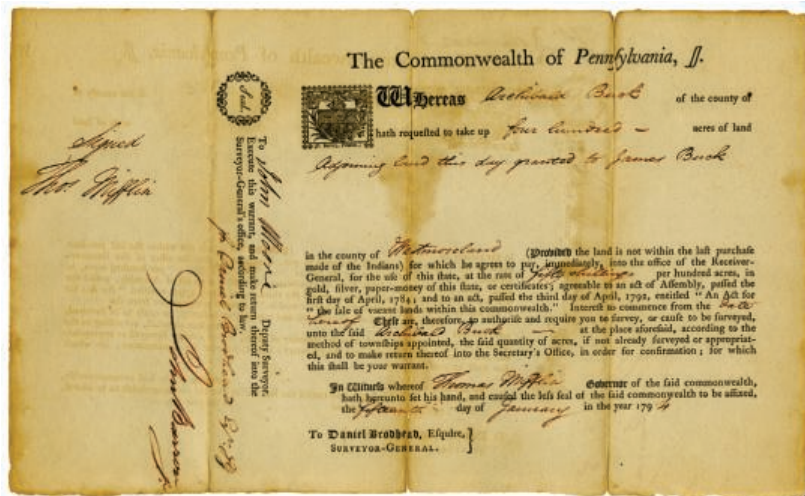 The Commonwealth of Pennsylvania, ss.
Whereas Archibald Buck of the county of
hath requested to take up four hundred – acres of land
Adjoining land this day granted to James Buck
in the county of Westmoreland (Provided the land is not within the last purchase
made of the Indians) for which he agrees to pay, immediately, into the office of the Receiver-
General, for the use of this state, at the rate of fifty shillings per hundred acres, in
gold, silver, paper-money of this state, or certificates; agreeable to an act of Assembly, passed the
first day of April, 1784; and to an act, passed the third day of April, 1792, entitled "An Act for
"the sale of vacant lands within this commonwealth." Interest to commence from the Date
hereof These are, therefore, to authorise and require you to survey, or cause to be surveyed,
unto the said Archibald Buck — at the place aforesaid, according to the
method of townships appointed, the said quantity of acres, if not already surveyed or appropriat-
ed, and to make return thereof into the Secretary's Office, in order for confirmation; for which
this shall be your warrant.
In Witness whereof Thomas Mifflin Governor of the said commonwealth,
hath hereunto set his hand, and caused the less seal of the said commonwealth to be affixed,
the fifteenth day of January in the year 1794
To Daniel Brodhead, Esquire,
Surveyor-General.
Ind.
To John Moore Deputy Surveyor.
Execute this warrant, and make return thereof into the
Surveyor-General's office, according to law.
Daniel Brodhead
Signed
Thos. Mifflin